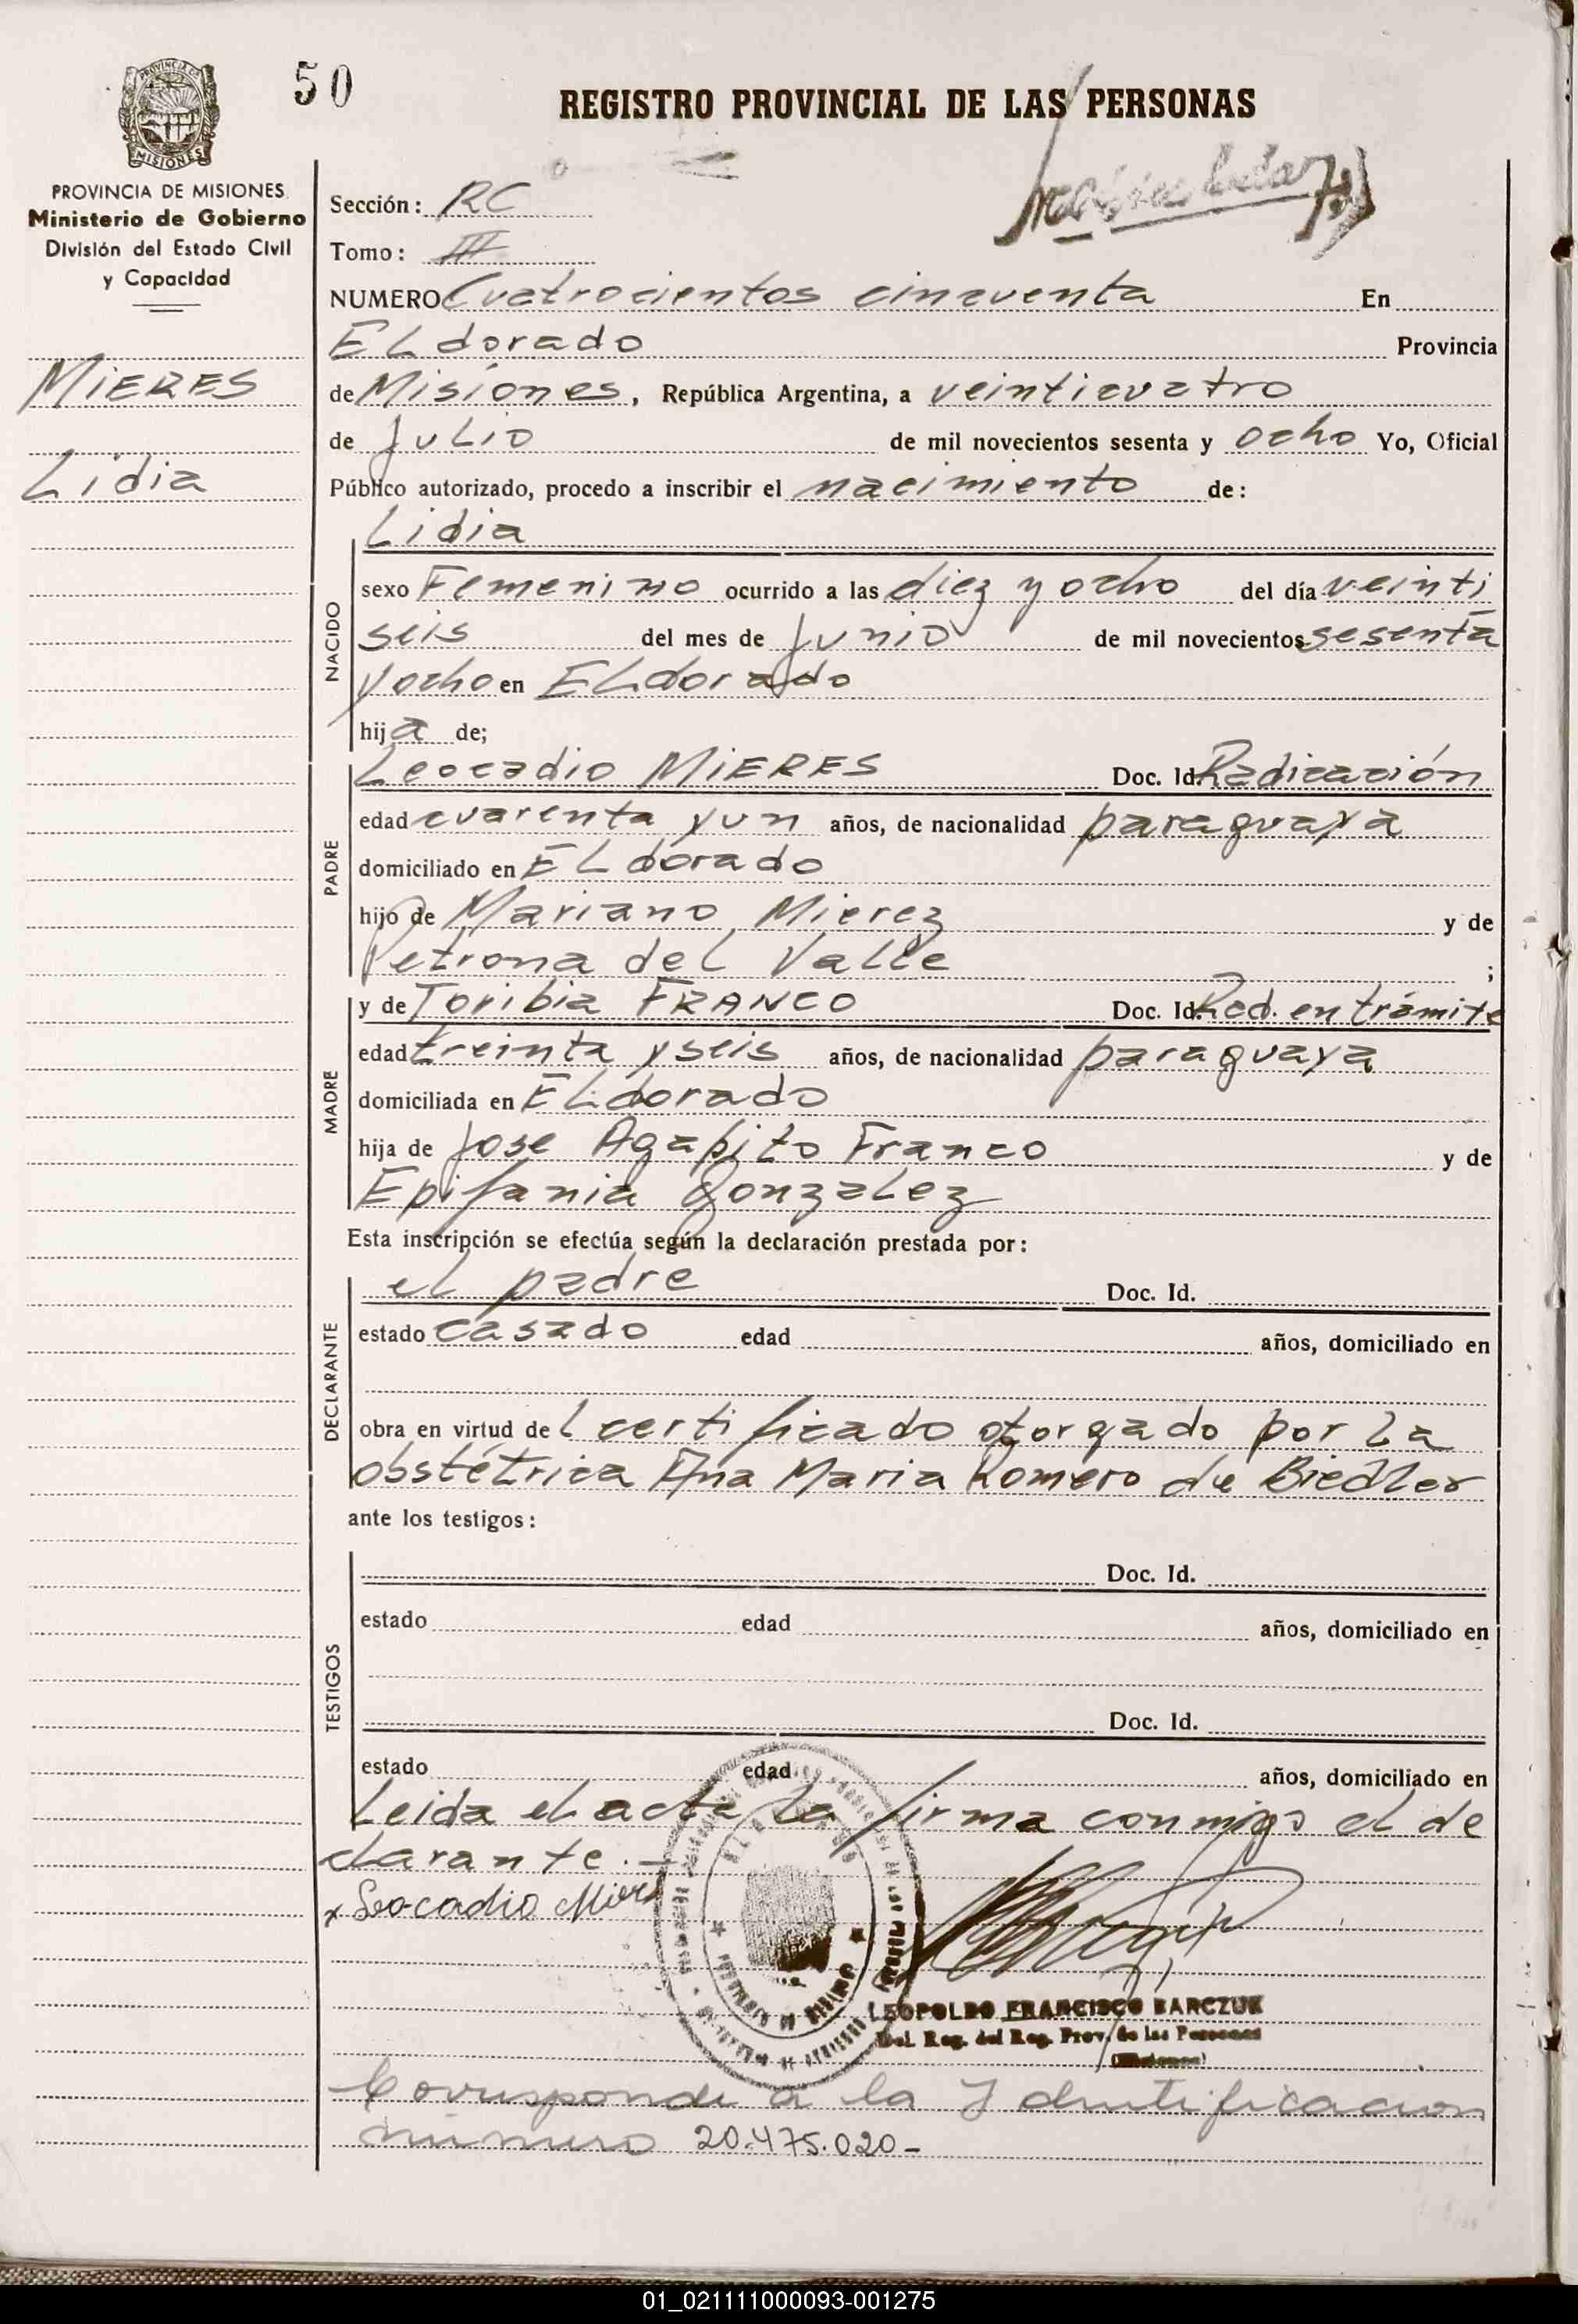 50
REGISTRO PROVINCIAL DE LAS PERSONAS
PROVINCIA DE MISIONES
MISIONES
PROVINCIA DE MISIONES
Ministerio de Gobierno
División del Estado Civil
y Capacidad
MIERES
Lidia
Sección: RC
Tomo: III
NUMERO Cuatrocientos cincuenta En
ELdorado Provincia
de Misiones, República Argentina, a veinticuatro
de Julio de mil novecientos sesenta y ocho Yo, Oficial
Público autorizado, procedo a inscribir el nacimiento de:
Lidia
NACIDO
sexo Femenino ocurrido a las diez y ocho del día veinti
seis del mes de Junio de mil novecientos sesenta
y ocho en ELdorado
hija de;
PADRE
Leocadio MIERES Doc. Id. Radicación
edad cuarenta y un años, de nacionalidad paraguaya
domiciliado en ELdorado
hijo de Mariano Mierez y de
Petrona del Valle ;
MADRE
y de Toribia FRANCO Doc. Id. Rad. en trámite
edad treinta y seis años, de nacionalidad paraguaya
domiciliada en ELdorado
hija de Jose Agapito Franco y de
Epifania Gonzalez
Esta inscripción se efectúa según la declaración prestada por:
DECLARANTE
el padre Doc. Id.
estado casado edad años, domiciliado en
obra en virtud del certificado otorgado por la
obstétrica Ana Maria Romero de Biedler
ante los testigos:
TESTIGOS
Doc. Id.
estado edad años, domiciliado en
Doc. Id.
estado edad años, domiciliado en
Leida el acta la firma conmigo el de
clarante.-
x Leocadio Mieres
LEOPOLDO FRANCISCO BARCZUK
Del. Reg. del Reg. Prov. de las Personas
(Misiones)
Corresponde a la Identificacion
número 20.475.020-
01_021111000093-001275